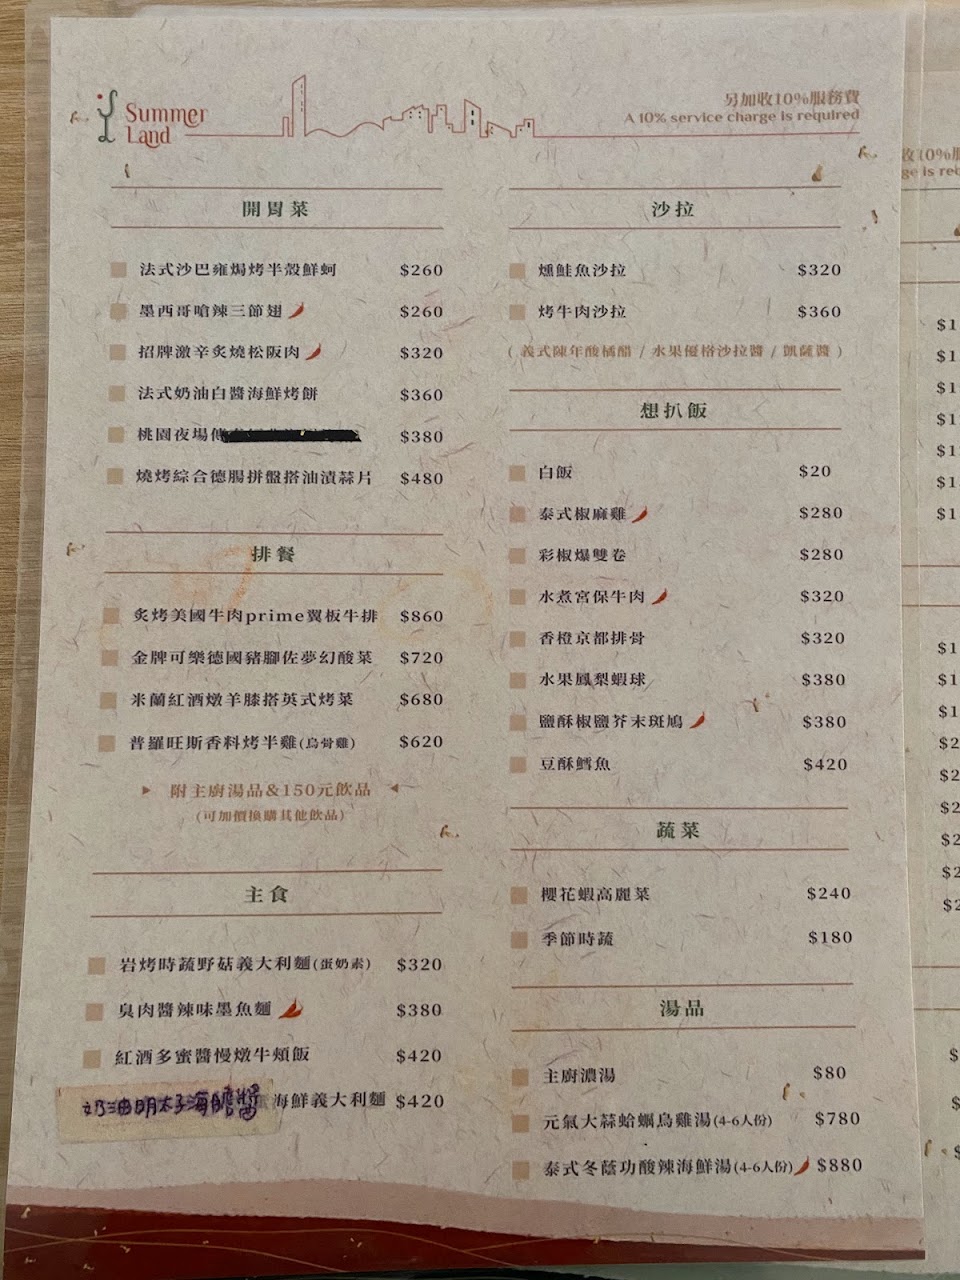 Summer
Land
另加收10%服務費
A 10% service charge is required
開胃菜
法式沙巴雍焗烤半殼鮮蚵 $260
墨西哥嗆辣三節翅 $260
招牌激辛炙燒松阪肉 $320
法式奶油白醬海鮮烤餅 $360
桃園夜場 $380
燒烤綜合德腸拼盤搭油漬蒜片 $480
排餐
炙烤美國牛肉prime翼板牛排 $860
金牌可樂德國豬腳佐夢幻酸菜 $720
米蘭紅酒燉羊膝搭英式烤菜 $680
普羅旺斯香料烤半雞(烏骨雞) $620
附主廚湯品&150元飲品
(可加價換購其他飲品)
主食
岩烤時蔬野菇義大利麵(蛋奶素) $320
臭肉醬辣味墨魚麵 $380
紅酒多蜜醬慢燉牛頰飯 $420
奶油明太子海膽醬 海鮮義大利麵 $420
沙拉
燻鮭魚沙拉 $320
烤牛肉沙拉 $360
( 義式陳年酸橘醋 / 水果優格沙拉醬 / 凱薩醬 )
想扒飯
白飯 $20
泰式椒麻雞 $280
彩椒爆雙卷 $280
水煮宮保牛肉 $320
香橙京都排骨 $320
水果鳳梨蝦球 $380
鹽酥椒鹽芥末斑鳩 $380
豆酥鱈魚 $420
蔬菜
櫻花蝦高麗菜 $240
季節時蔬 $180
湯品
主廚濃湯 $80
元氣大蒜蛤蠣烏雞湯(4-6人份) $780
泰式冬蔭功酸辣海鮮湯(4-6人份) $880